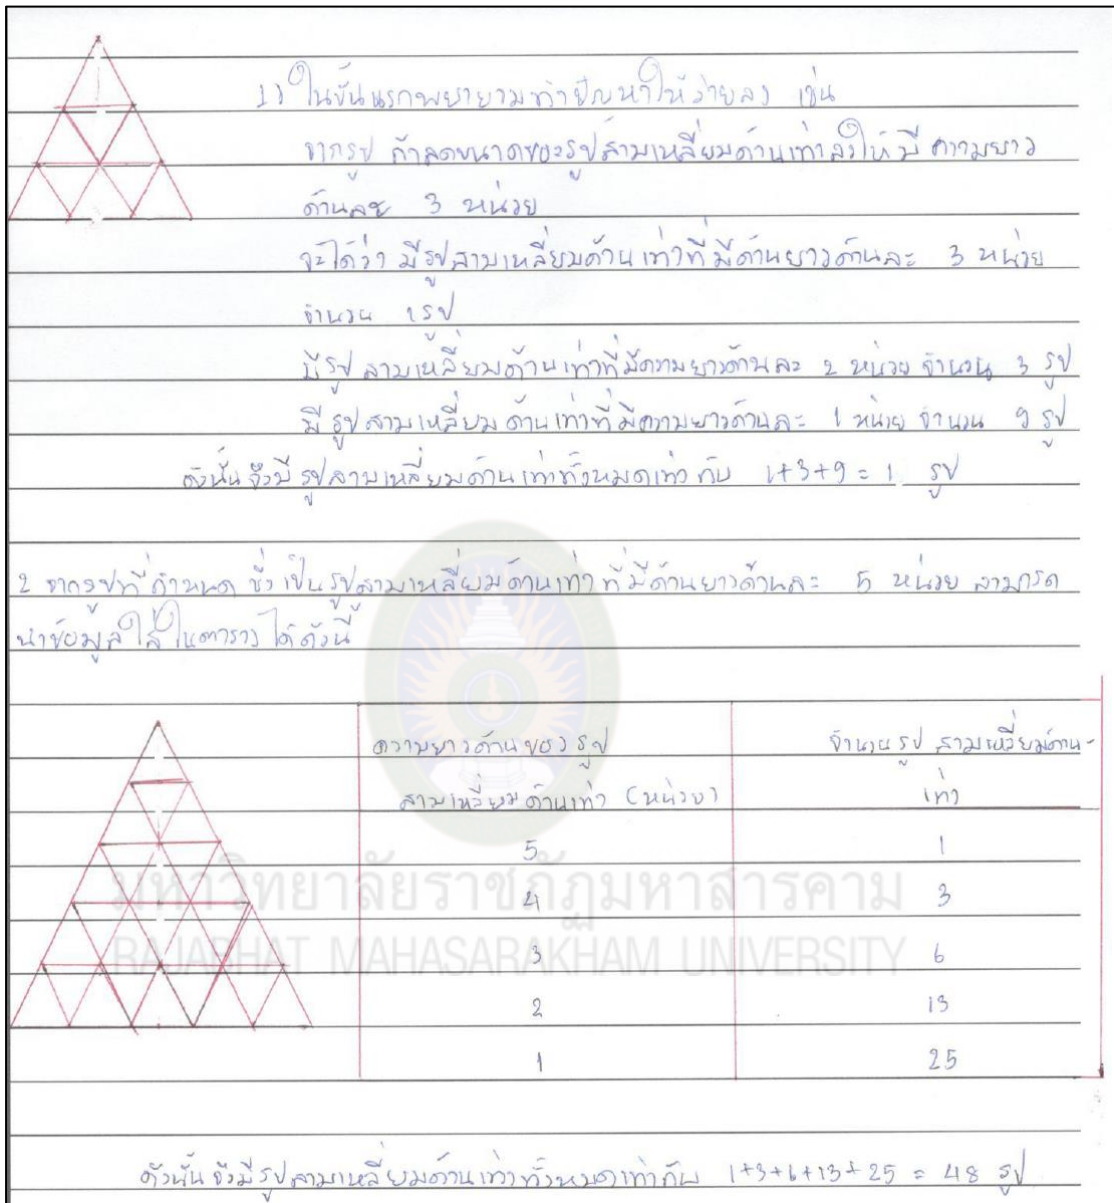 1) ในขั้นแรกพยายามทำปัญหาให้ง่ายลง เช่น
จากรูป ถ้าลดขนาดของรูปสามเหลี่ยมด้านเท่าลงให้มีความยาว
ด้านละ 3 หน่วย
จะได้ว่า มีรูปสามเหลี่ยมด้านเท่าที่มีด้านยาวด้านละ 3 หน่วย
จำนวน 1 รูป
มีรูปสามเหลี่ยมด้านเท่าที่มีความยาวด้านละ 2 หน่วย จำนวน 3 รูป
มีรูปสามเหลี่ยมด้านเท่าที่มีความยาวด้านละ 1 หน่วย จำนวน 9 รูป
ดังนั้นจึงมีรูปสามเหลี่ยมด้านเท่าทั้งหมดเท่ากับ 1+3+9 = 1 รูป
2 จากรูปที่กำหนด ซึ่งเป็นรูปสามเหลี่ยมด้านเท่าที่มีด้านยาวด้านละ 5 หน่วย สามารถ
นำข้อมูลใส่ในตารางได้ดังนี้
ความยาวด้านของรูป จำนวนรูปสามเหลี่ยมด้าน-
สามเหลี่ยมด้านเท่า (หน่วย) เท่า
5 1
4 3
3 6
2 13
1 25
มหาวิทยาลัยราชภัฏมหาสารคาม
RAJABHAT MAHASARAKHAM UNIVERSITY
ดังนั้นจึงมีรูปสามเหลี่ยมด้านเท่าทั้งหมดเท่ากับ 1+3+6+13+25 = 48 รูป